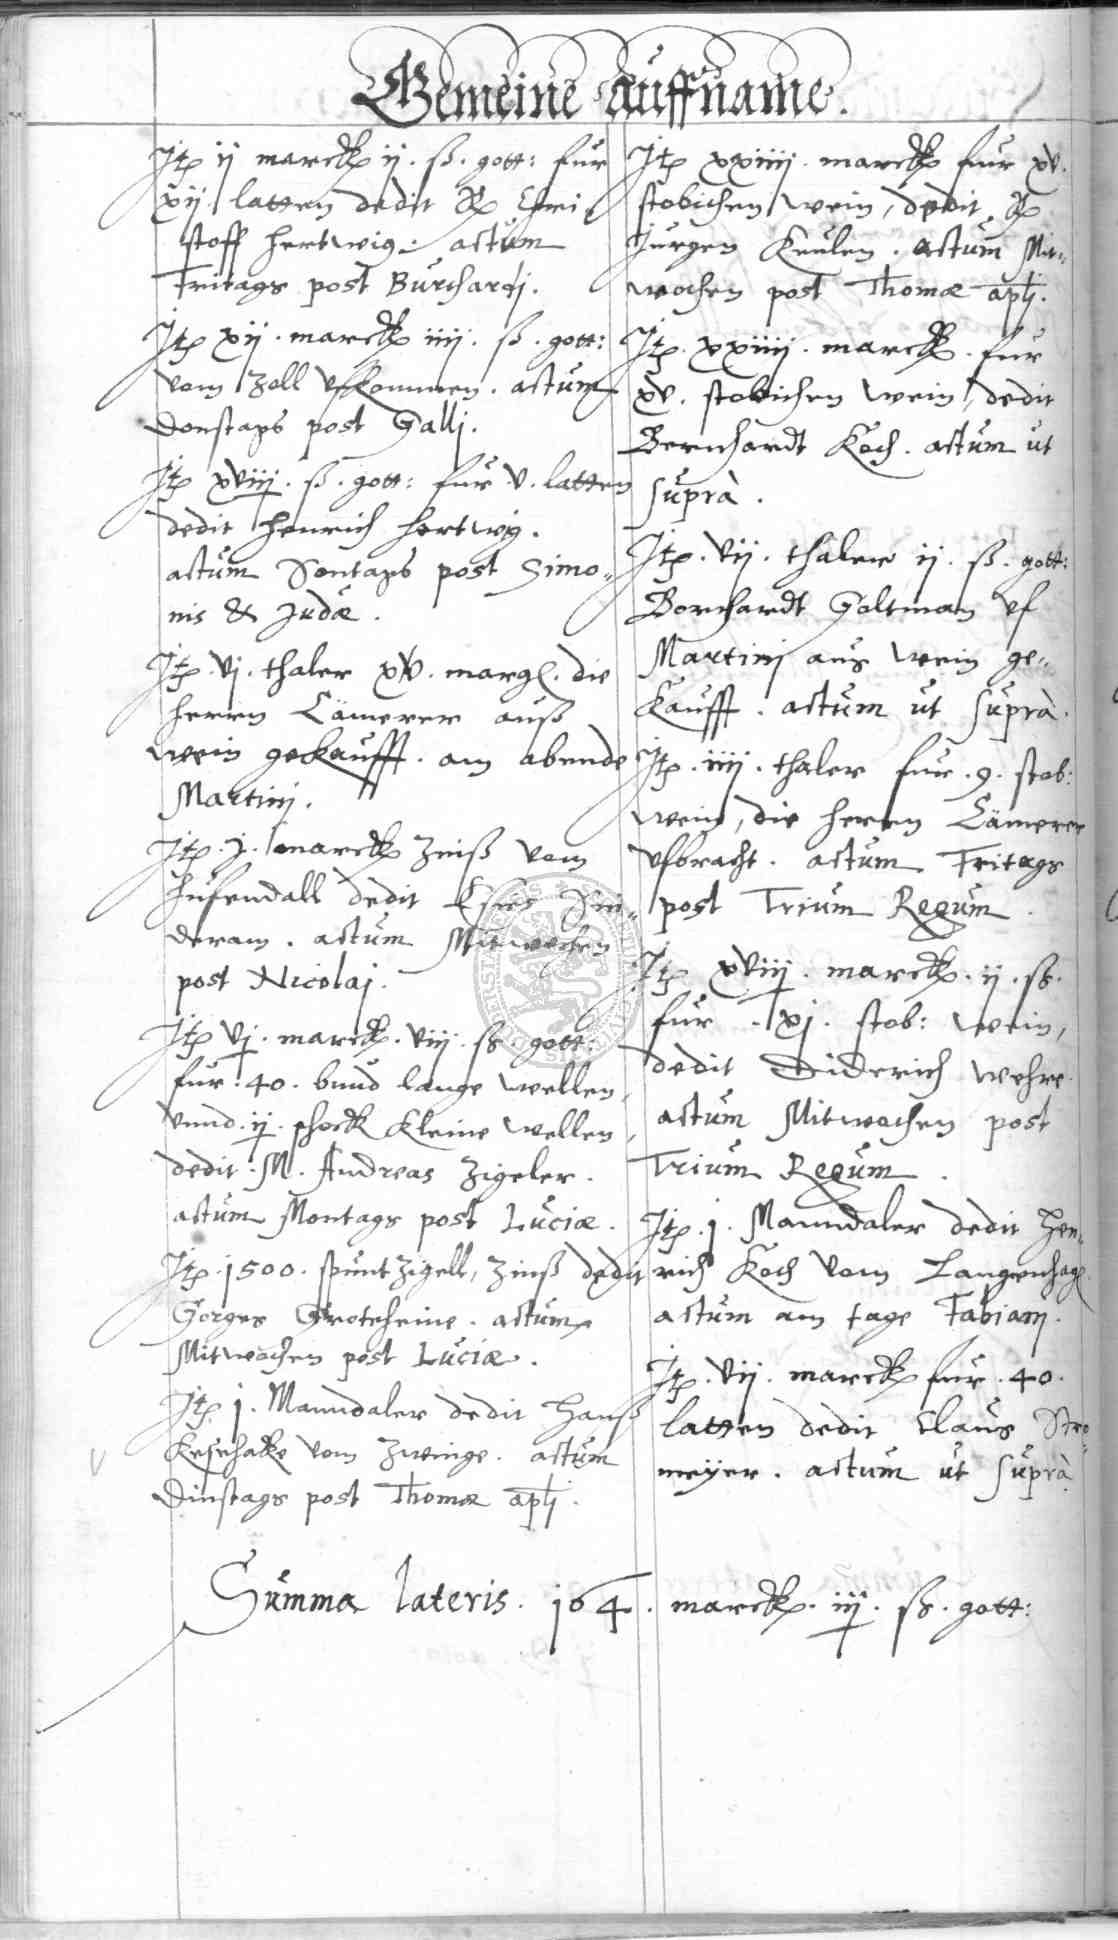 Gemeine auffname.
Itē ij marckē ij. ß. gott: fur
xij latten dedit Er Chri-
stoff hertwig. actum
Fritags post Burchardj.
Itē xij. marckē iiij. ß. gott:
vom Zoll vfkommen. actum
Donstags post Gallj.
Itē xviij. ß. gott: fur v. latten
dedit Henrich hertwig.
actum Sontags post Simo-
nis & Judæ.
Itē vj. thaler xv. margl. die
herrn Cämerer auß
wein gekaufft. am abende
Martinj.
Itē j. marckē Zinß vom
hufendall dedit
. actum Mitwochen
post Nicolaj.
Itē vj. marckē. viij. ß. gott:
fur. 40. bund lange wellen,
vnnd. ij. schock kleine wellen,
dedit. M. Andreas Zigeler.
actum Montags post Luciæ.
Itē 1500. spuntZigell, Zinß dedit
Gorges Groteheine. actum
Mitwochen post Luciæ.
Itē j. Manndaler dedit Hanß
vom Zwinge. actum
Dinstags post Thomæ aplj.
Itē xxiiij. marckē fur xv.
stobichen wein, dedit Er
Jurgen Keulen. actum Mit-
wochen post Thomæ aplj.
Itē. xxiiij. marckē. fur
xv. stobichen wein, dedit
Bernhardt Koch. actum ut
suprà.
Itē. vij. thaler ij. ß. gott:
Borchardt Goltman vf
Martinj aus wein ge-
kaufft. actum ut suprà.
Itē. iiij. thaler fur. 9. stob:
wein, die herrn Cämerer
vfbracht. actum Fritags
post Trium Regum.
Itē xviij. marckē. ij. ß.
fur. xj. stob: wein,
dedit Diderich wehre.
actum Mitwochen post
Trium Regum.
Itē. j. Manndaler dedit Hen-
rich Koch vom Langenhagē.
actum am tage Fabianj.
Itē. vij. marckē fur. 40.
latten dedit Claus Stro-
meyer. actum ut suprà
Summa lateris. 164. marckē. iij. ß. gott: